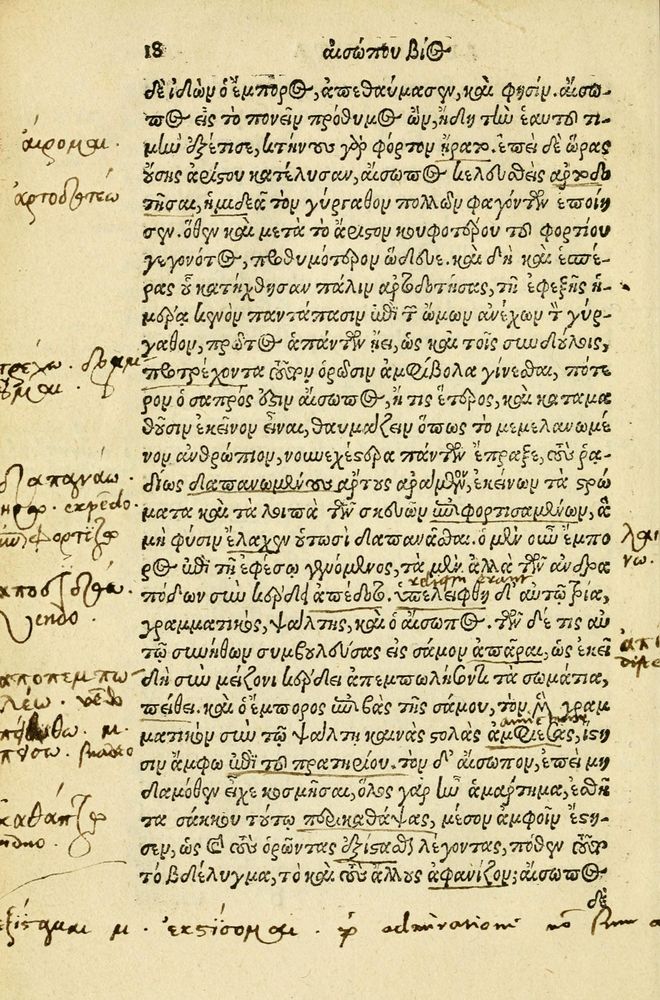 18 αἰσώπου βίος
δὲ ἰδὼν ὁ ἔμπορος, ἀπεθαύμασεν, καὶ φησίν. αἴσω-
πος εἰς τὸ πονεῖν πρόθυμος ὢν, ἤδη τὴν ἑαυτοῦ τι-
μὴν ἐξέτισε, κτήνους γὰρ φόρτον ἦρεν. ἐπεὶ δὲ ὥρας
αἴρομαι.
οὔσης ἀρίστου κατέλυσαν, αἴσωπος κελευθεὶς ἀρτοδο
τῆσαι, ἡμιδεᾶ τὸν γύργαθον πολλῶν φαγόντων ἐποίη
σεν. ὅθεν καὶ μετὰ τὸ ἄριστον κουφοτέρου τοῦ φορτίου
γεγονότος, προθυμότερον ὥδευε. καὶ δὴ καὶ ἑσπέ-
ρας οὗ κατήχθησαν πάλιν ἀρτοδοτήσας, τῇ ἐφεξῆς ἡ-
μέρᾳ κενὸν παντάπασιν ἐπὶ τῶν ὤμων ἀνέχων τὸν γύρ-
γαθον, πρῶτος ἁπάντων ᾔει, ὡς καὶ τοῖς συνδούλοις,
προτρέχοντα τοῦτον ὁρῶσιν ἀμφίβολα γίνεσθαι, πότε
ρον ὁ σαπρός ἐστιν αἴσωπος, ἤ τις ἕτερος, καὶ καταμα
θοῦσιν ἐκεῖνον εἶναι, θαυμάζειν ὅπως τὸ μεμελανωμέ
νον ἀνθρώπιον, νουνεχέστερα πάντων ἔπραξε, τοὺς ῥα-
δίως δαπανωμένους ἄρτους ἀράμενον, ἐκείνων τὰ στρώ
δαπανάω.
expendo.
ματα καὶ τὰ λοιπὰ τῶν σκευῶν ἐπιφορτισαμένων, ἃ
μὴ φύσιν ἔλαχεν οὑτωσὶ δαπανᾶσθαι. ὁ μὲν οὖν ἔμπο
ρος ἐπὶ τῇ ἐφέσῳ γενόμενος, τὰ μὲν ἄλλα τῶν ἀνδρα
πόδων σὺν κέρδει ἀπέδοτο. ὑπελείφθη δ' αὐτῷ τρία,
vendo.
γραμματικὸς, ψάλτης, καὶ ὁ αἴσωπος. τῶν δέ τις αὐ
τῷ συνήθων συμβουλεύσας εἰς σάμον ἀπᾶραι, ὡς ἐκεῖ
δὴ σὺν μείζονι κέρδει ἀπεμπολήσοντι τὰ σωμάτια,
πείθει. καὶ ὁ ἔμπορος ἐπιβὰς τῆς σάμου, τὸν μὲν γραμ
ματικὸν σὺν τῷ ψάλτῃ καινὰς στολὰς ἀμφιέσας, ἵστη
σιν ἄμφω ἐπὶ τοῦ πρατηρίου. τὸν δ' αἴσωπον, ἐπεὶ μη
δαμόθεν εἶχε κοσμῆσαι, ὅλος γὰρ ἦν ἁμάρτημα, ἐσθῆ
τα σάκκου τούτῳ περικαθάψας, μέσον ἀμφοῖν ἔστη-
σεν, ὡς καὶ τοὺς ὁρῶντας ἐξίστασθαι λέγοντας, πόθεν τοῦτο
τὸ βδέλυγμα, τὸ καὶ τοὺς ἄλλους ἀφανίζον; αἴσωπος
δὲ
μ. ἐκστήσομαι. admiratione